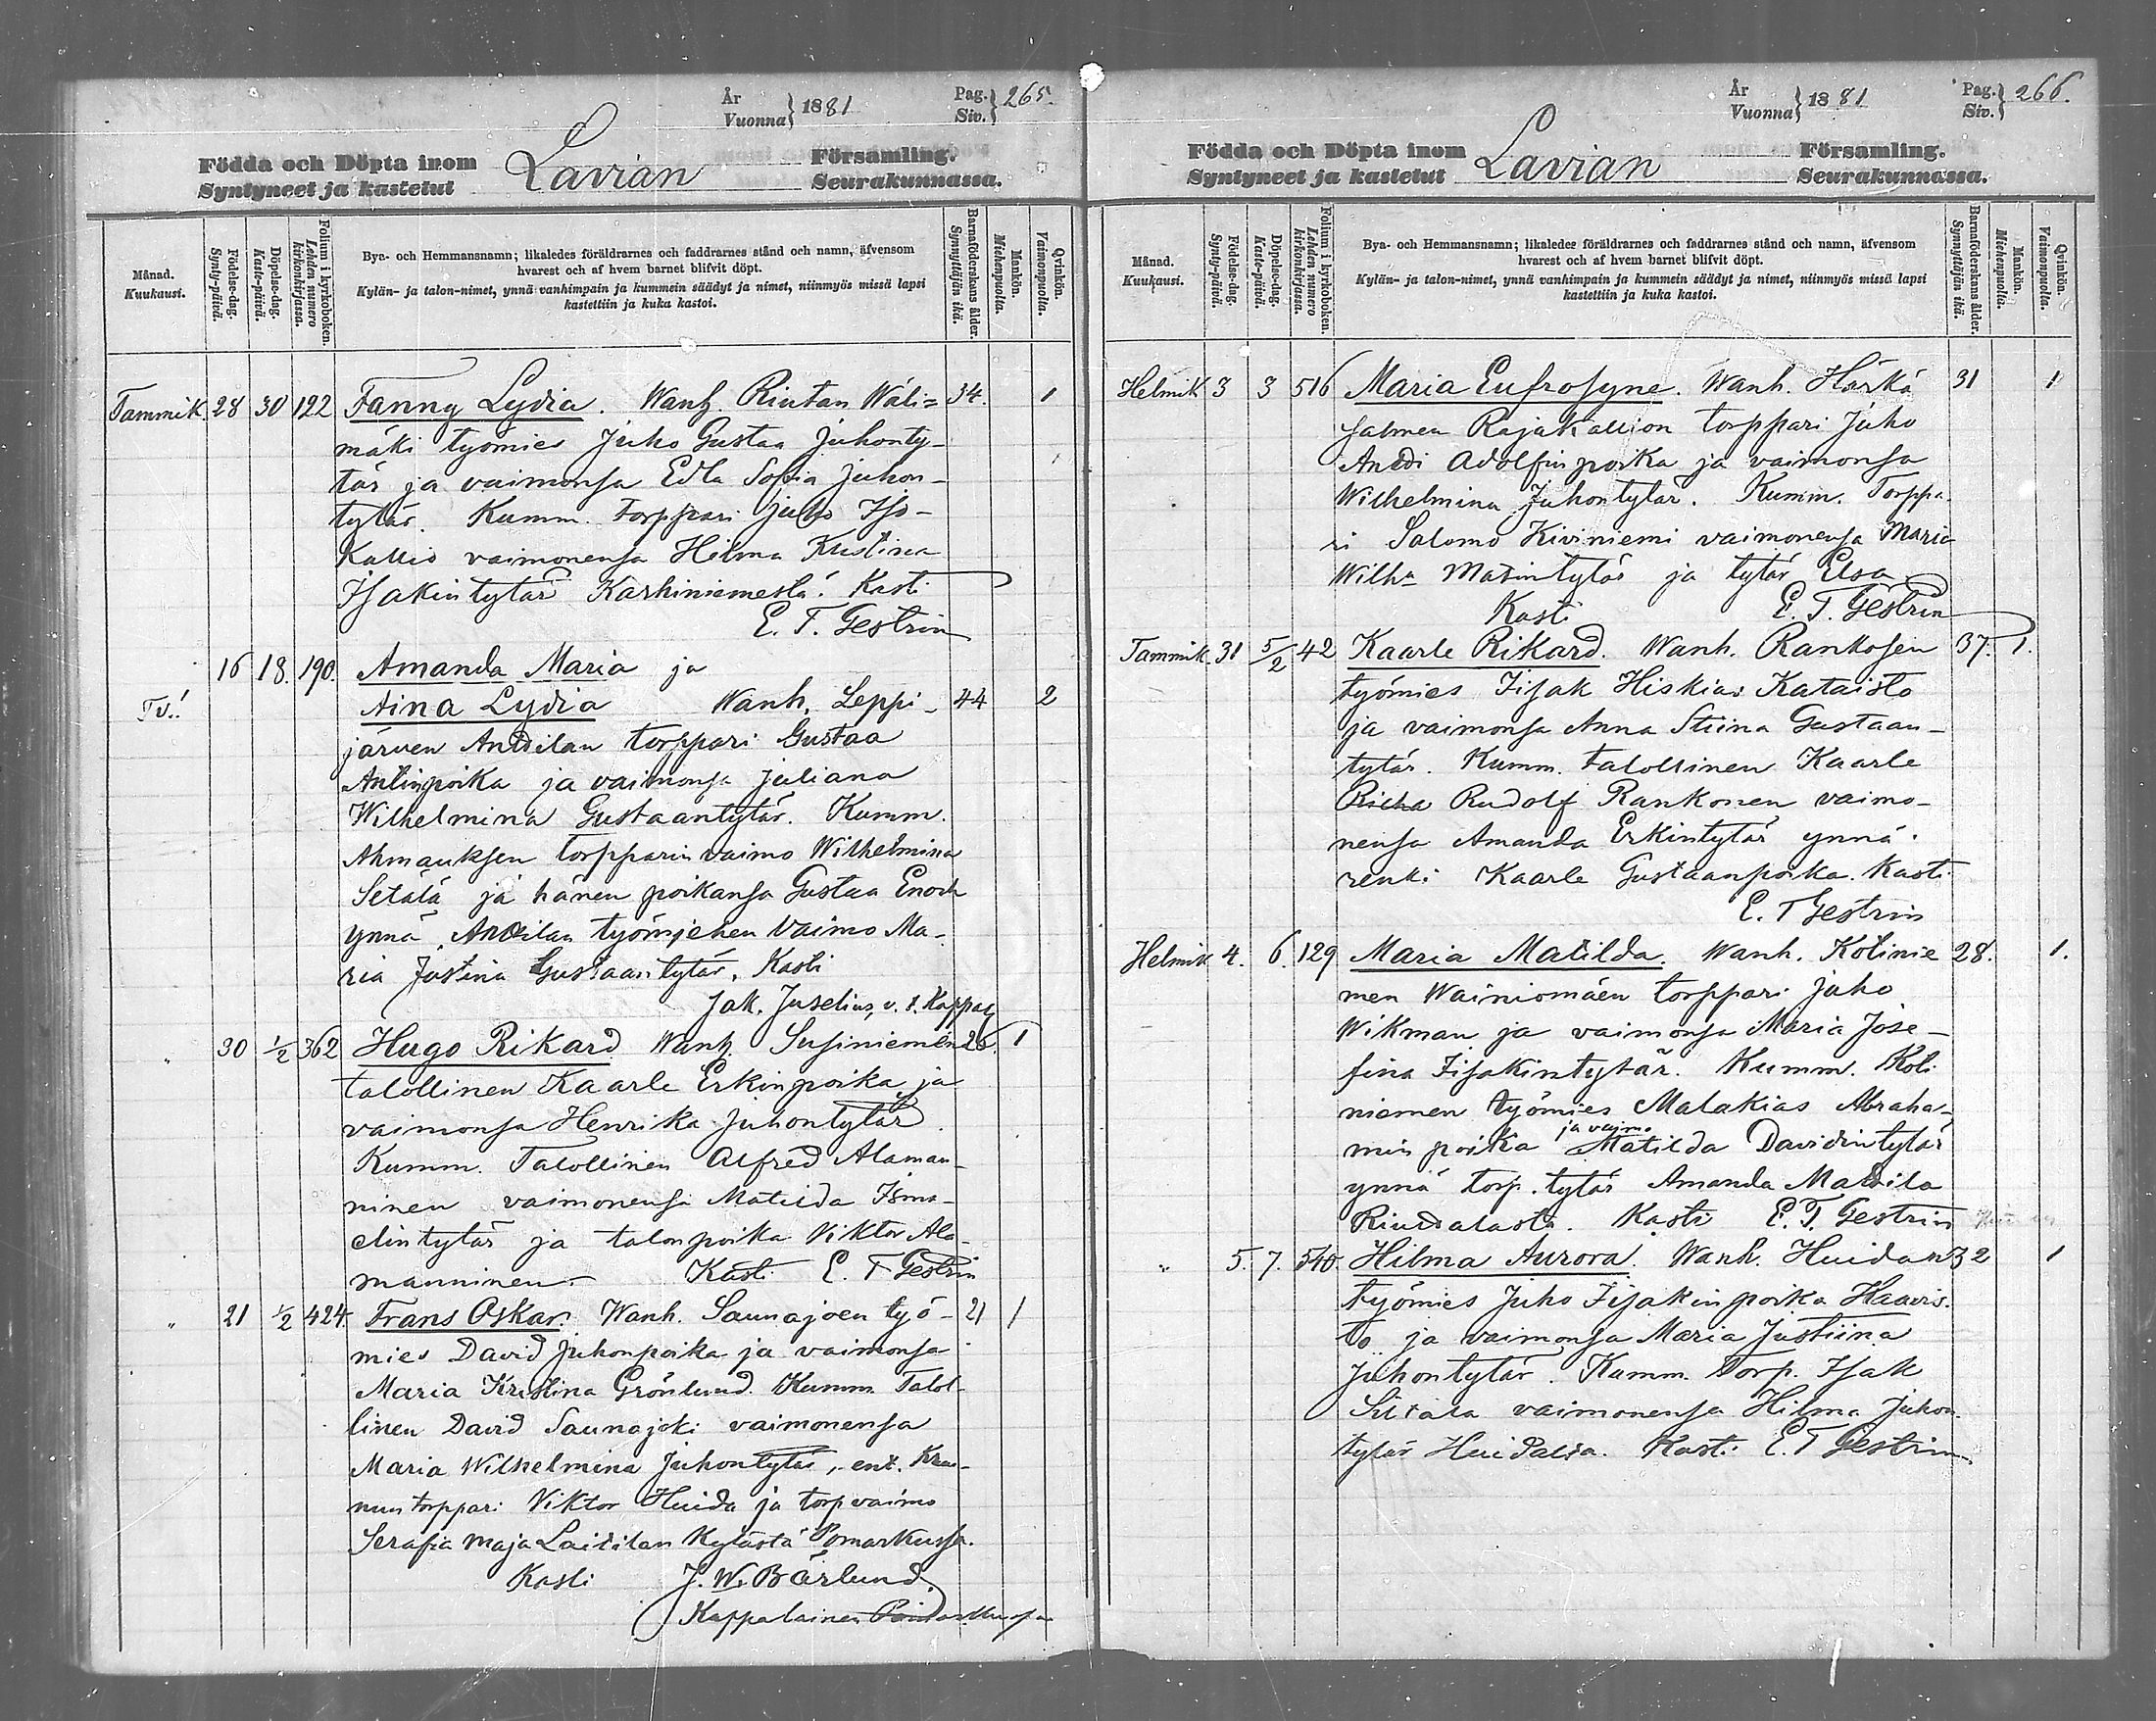 År Vuonna } 1881 Pag. Siv. } 265.
Födda och Döpta inom Lavian Församling.
Syntyneet ja kastetut Seurakunnassa.
Månad. Kuukausi.
Födelse-dag. Synty-päivä.
Döpelse-dag. Kaste-päivä.
Folium i kyrkoboken. Lehden numero kirkonkirjassa.
Bya- och Hemmansnamn; likaledes föräldrarnes och faddrarnes stånd och namn, äfvensom
hvarest och af hvem barnet blifvit döpt.
Kylän- ja talon-nimet, ynnä vanhimpain ja kummein säädyt ja nimet, niinmyös missä lapsi
kastettiin ja kuka kastoi.
Barnaföderskans ålder. Synnyttäjän ikä.
Mankön. Miehenpuolta.
Qvinkön. Vaimonpuolta.
Tammik. 28 30 122 Fanny Lydia. Wanh. Riutan Wäli= 34. 1
mäki työmies Juho Gustaa Juhonty-
tär ja vaimonsa Edla Sofia Juhon-
tytär. Kumm. Torppari Juho Iso-
Kallio vaimonensa Hilma Kristina
Isakintytär Karhiniemestä. Kasti
E. T. Gestrin
16 18. 190. Amanda Maria ja
Aina Lydia Wanh. Leppi- 44 2
järven Anttilan torppari Gustaa
Antinpoika ja vaimonsa Juliana
Wilhelmina Gustaantytär. Kumm.
Ahmauksen torpparin vaimo Wilhelmina
Setälä ja hänen poikansa Gustaa Enoch
ynnä Anttilan työmiehen vaimo Ma-
ria Justina Gustaantytär. Kasti
Jak. Juselius, v. t. Kappal
„ 30 1/2 362 Hugo Rikard Wanh. Susiniemen 26. 1
talollinen Kaarle Erkinpoika ja
vaimonsa Henrika Juhontytär.
Kumm. Talollinen Alfred Alaman-
ninen vaimonensa Matilda Isma-
elintytär ja talonpoika Viktor Ala-
manninen. Kasti E. T Gestrin
„ 21 1/2 424. Frans Oskar. Wanh. Saunajoen työ- 21 1
mies David Juhonpoika ja vaimonsa
Maria Kristina Grönlund. Kumm. Talol-
linen David Saunajoki vaimonensa
Maria Wilhelmina Juhontytär, ent. Kruu-
nun torppari Viktor Huida ja torp vaimo
Serafia Maja Laitilan Kylästä Pomarkussa.
Kasti J. W. Bärlund.
Kappalainen Pomarkussa
År Vuonna } 1881 Pag. Siv. } 266.
Födda och Döpta inom Lavian Församling.
Syntyneet ja kastetut Seurakunnassa.
Månad. Kuukausi.
Födelse-dag. Synty-päivä.
Döpelse-dag. Kaste-päivä.
Folium i kyrkoboken. Lehden numero kirkonkirjassa.
Bya- och Hemmansnamn; likaledes föräldrarnes och faddrarnes stånd och namn, äfvensom
hvarest och af hvem barnet blifvit döpt.
Kylän- ja talon-nimet, ynnä vanhimpain ja kummein säädyt ja nimet, niinmyös missä lapsi
kastettiin ja kuka kastoi.
Barnaföderskans ålder. Synnyttäjän ikä.
Mankön. Miehenpuolta.
Qvinkön. Vaimonpuolta.
Helmik 3 3 516 Maria Eufrosyne. Wanh. Härkä 31 1
salmen Rajakallion torppari Juho
Antti Adolfinpoika ja vaimonsa
Wilhelmina Juhontytär. Kumm. Torppa-
ri Salomo Kiviniemi vaimonensa Maria
Wilhа Matintytär ja tytär Elsa
Kasti E. T. Gestrin
Tammik. 31 5/2 42 Kaarle Rikard. Wanh. Rankosen 37. 1.
työmies Iisak Hiskias Kataisto
ja vaimonsa Anna Stiina Gustaan-
tytär. Kumm. talollinen Kaarle
Richa Rudolf Rankonen vaimo-
nensa Amanda Erkintytär ynnä
renki Kaarle Gustaanpoika. Kasti
E. T Gestrin
Helmik 4. 6. 129 Maria Matilda. Wanh. Kotinie 28. 1.
men Wainiomäen torppari Juho
Wikman ja vaimonsa Maria Jose-
fina Iisakintytär. Kumm. Koti
niemen työmies Malakias Abraha-
min poika ja vaimo Matilda Davidintytär
ynnä torp. tytär Amanda Matila
Riuttalasta. Kasti E. T. Gestrin
„ 5. 7. 540. Hilma Aurora. Wanh. Huidan 32 1
työmies Juho Iisakinpoika Haavis-
to ja vaimonsa Maria Justiina
Juhontytär. Kumm. Torp. Isak
vaimonensa Hilma Juhon-
tytär Huidalta. Kasti E. T Gestrin